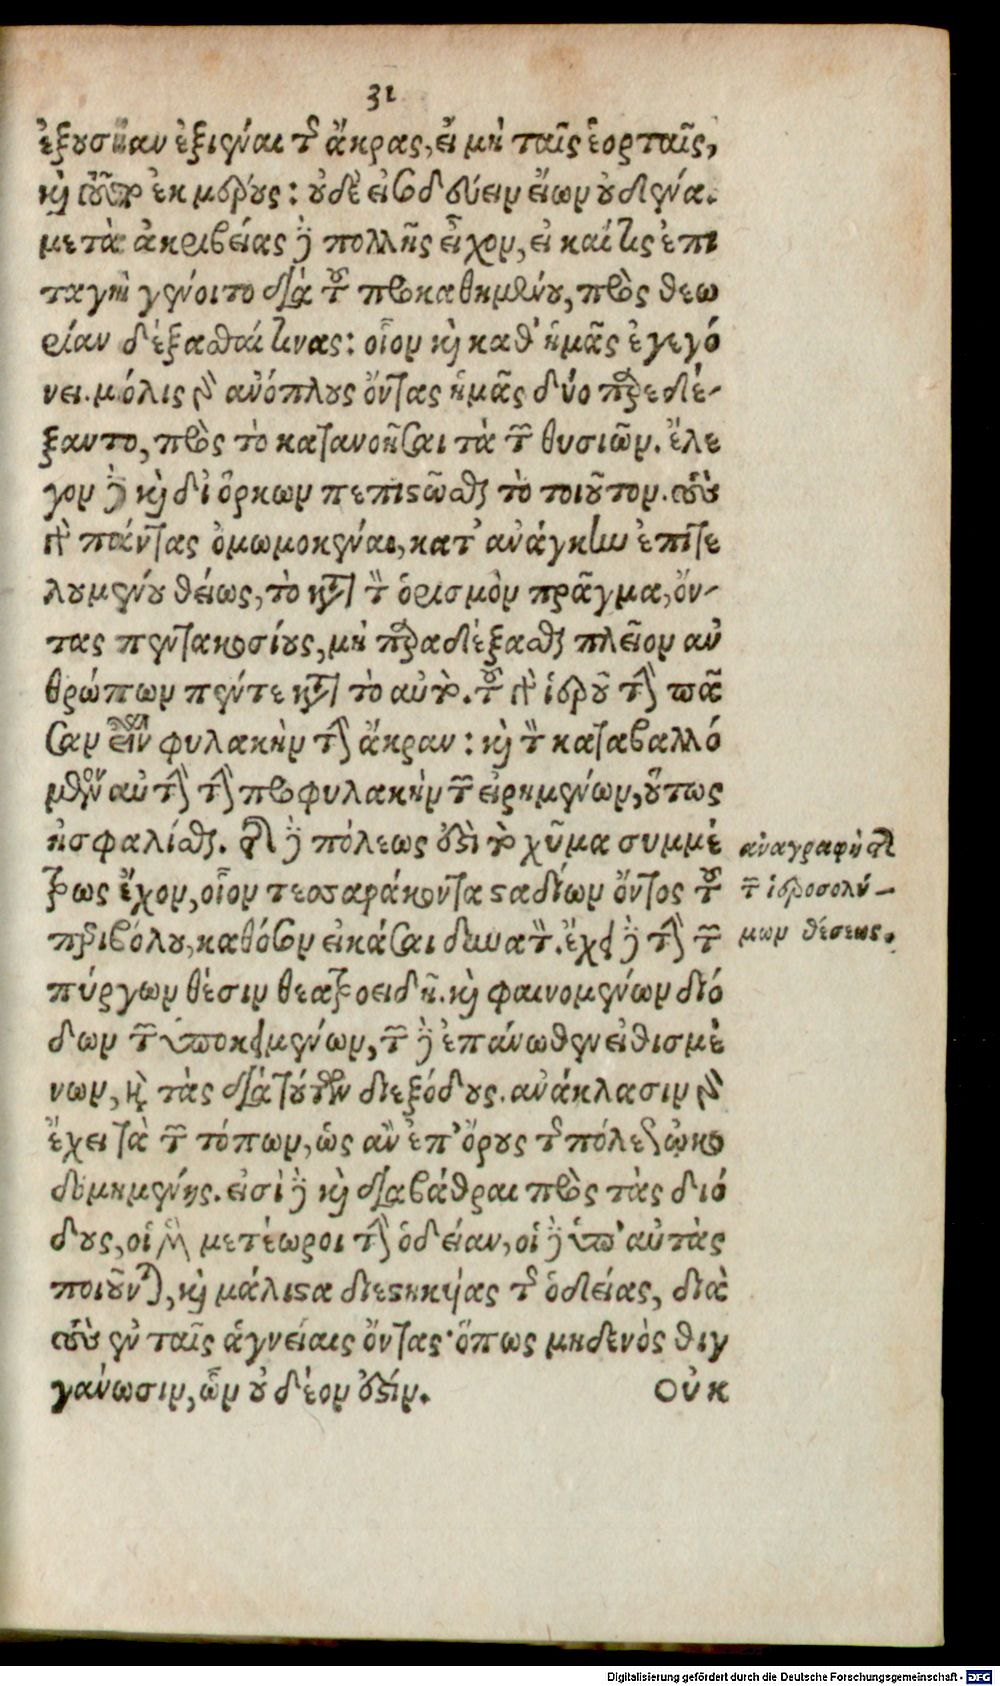 31
ἐξουσίαν ἐξιέναι τῆς ἄκρας, εἰ μὴ ταῖς ἑορταῖς,
καὶ τοῦτο ἐκ μέρους: οὐδὲ εἰσοδεύειν εἴων οὐδένα.
μετὰ ἀκριβείας δὲ πολλῆς εἶχον, εἰ καί τις ἐπι
ταγὴ γένοιτο διὰ τοῦ προκαθημένου, πρὸς θεω
ρίαν δέξασθαί τινας: οἷον καὶ καθ' ἡμᾶς ἐγεγό
νει. μόλις γὰρ ἀνόπλους ὄντας ἡμᾶς δύο παρεδέ-
ξαντο, πρὸς τὸ κατανοῆσαι τὰ τῶν θυσιῶν. ἔλε
γον δὲ καὶ δι' ὅρκων πεπιστῶσθαι τὸ τοιοῦτον. τοὺς
γὰρ πάντας ὀμωμοκέναι, κατ' ἀνάγκην ἐπιτε
λουμένου θείως, τὸ κατὰ τὸν ὁρισμὸν πρᾶγμα, ὄν-
τας πεντακοσίους, μὴ παραδέξασθαι πλεῖον ἀν
θρώπων πέντε κατὰ τὸ αὐτό. τοῦ γὰρ ἱεροῦ τὴν πᾶ
σαν εἶναι φυλακὴν τὴν ἄκραν: καὶ τὸν καταβαλλό
μενον αὐτὴν τὴν προφυλακὴν τῶν εἰρημένων, οὕτως
ἠσφαλίσθαι. τῆς δὲ πόλεώς ἐστι τὸ χῦμα συμμέ
τρως ἔχον, οἷον τεσσαράκοντα σταδίων ὄντος τοῦ
περιβόλου, καθόσον εἰκάσαι δυνατόν. ἔχει δὲ τὴν τῶν
πύργων θέσιν θεατροειδῆ. καὶ φαινομένων διό
δων τῶν ὑποκειμένων, τῶν δ' ἐπάνωθεν εἰθισμέ
νων, καὶ τὰς διὰ τούτων διεξόδους. ἀνάκλασιν γὰρ
ἔχει τὰ τῶν τόπων, ὡς ἂν ἐπ' ὄρους τῆς πόλεως ᾠκο
δομημένης. εἰσὶ δὲ καὶ διαβάθραι πρὸς τὰς διό
δους, οἱ μὲν μετέωροι τὴν ὁδείαν, οἱ δ' ὑπ' αὐτὰς
ποιοῦνται, καὶ μάλιστα διεστηκυίας τῆς ὁδείας, διὰ
τοὺς ἐν ταῖς ἁγνείαις ὄντας· ὅπως μηδενὸς θιγ
γάνωσιν, ὧν οὐ δέον ἐστίν. Οὐκ
ἀναγραφὴ τῆς
τῶν ἱεροσολύ-
μων θέσεως.
Digitalisierung gefördert durch die Deutsche Forschungsgemeinschaft - DFG